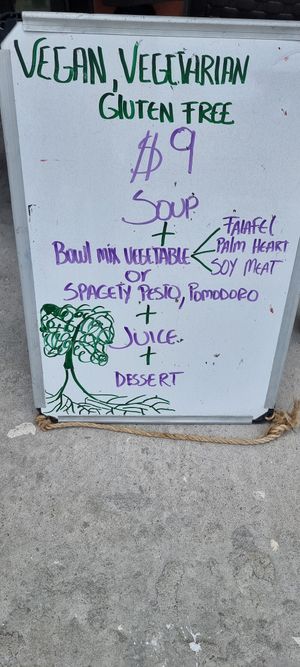 VEGAN, VEGETARIAN
GLUTEN FREE
$9
SOUP
+
FALAFEL
BOWL MIX VEGETABLE PALM HEART
SOY MEAT
or
SPAGETY PESTO, POMODORO
+
JUICE
+
DESSERT